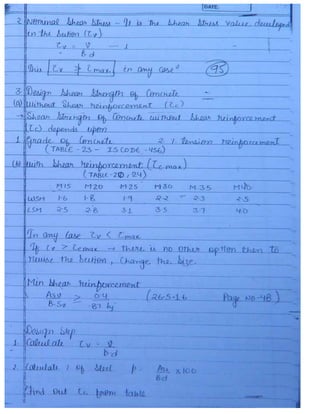 DATE
2 Nominal Shear Stress - It is the Shear Stress value developed
in the section (τv)
τv = V / Bd — 1
This τv ≯ τmax in any case
95
3. Design Shear Strength of Concrete
(a) Without Shear reinforcement (τc)
→ Shear Strength of Concrete without Shear reinforcement
(τc) depends upon
1 Grade of Concrete 2 % tension reinforcement
(TABLE - 23 - IS CODE - 456)
(b) With Shear reinforcement (τc max)
(TABLE - 20, 24)
M15 M20 M25 M30 M35 M40
WSM 1.6 1.8 1.9 2.2 2.3 2.5
LSM 2.5 2.8 3.1 3.5 3.7 4.0
In any case τv < τcmax
If τv > τcmax → there is no other option then to
revise the section, Change the Size.
Min Shear reinforcement
Asv / B.Sv ≥ 0.4 / .87 fy (26.5.1.6 Page NO-48)
Design Step
1. Calculate τv = V / Bd
2. Calculate % of Steel p. Ast / Bd x 100
Find out τc from table